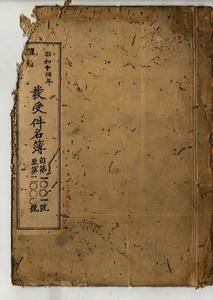 昭和十四年
發受件名簿
自第一〇〇一號
至第二〇〇〇號